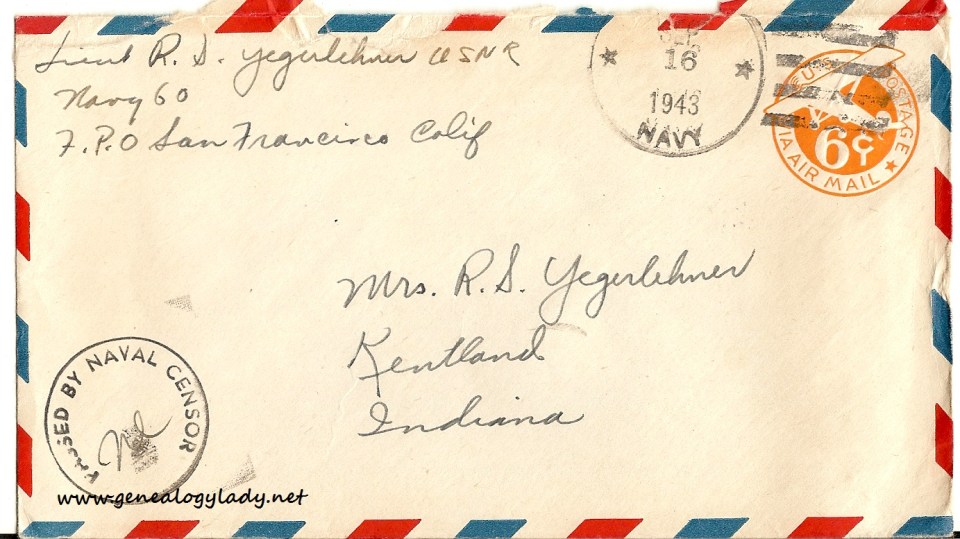 Lieut R. S. Yegerlehner USNR
Navy 60
F.P.O San Francisco Calif
SEP
16
1943
NAVY
POSTAGE
VIA AIR MAIL
6¢
Mrs. R. S. Yegerlehner
Kentland
Indiana
PASSED BY NAVAL CENSOR
www.genealogylady.net